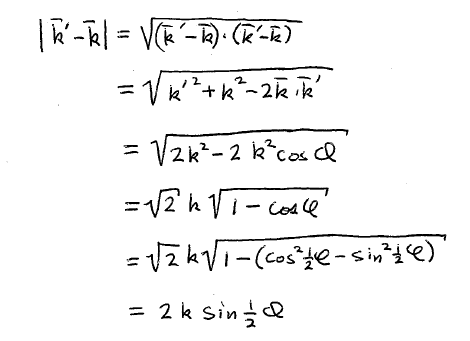 |k̄′-k̄| = √((k̄′-k̄)·(k̄′-k̄))
= √(k′²+k²-2k̄·k̄′)
= √(2k²-2k²cos φ)
= √2 k √(1-cos φ)
= √2 k √(1-(cos²½φ-sin²½φ))
= 2k sin ½φ